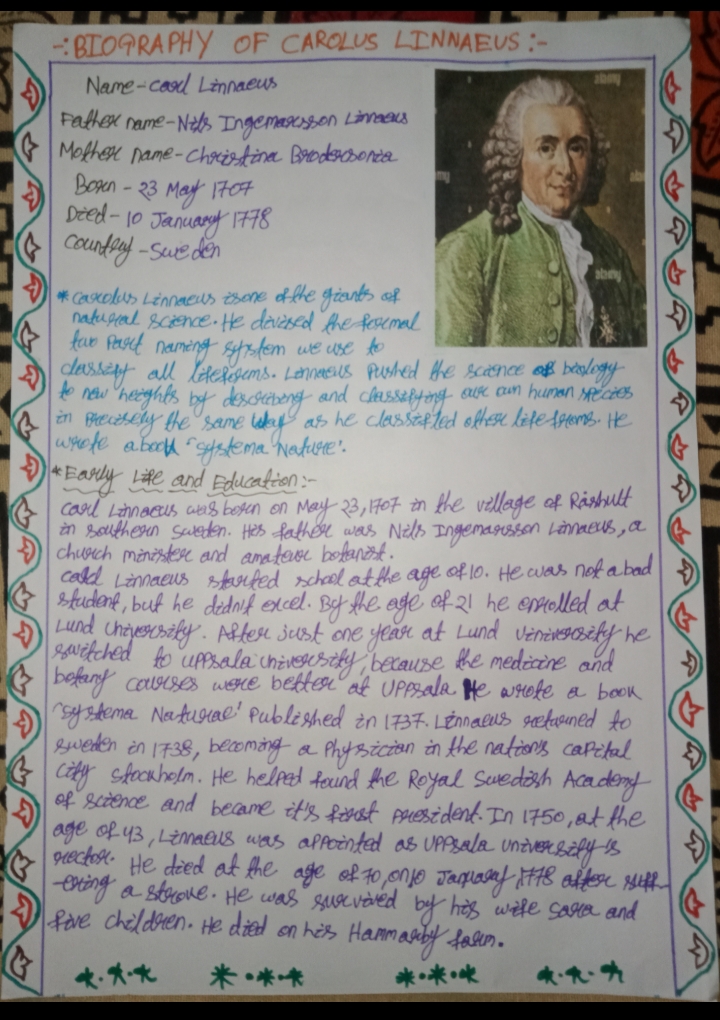 -:BIOGRAPHY OF CAROLUS LINNAEUS:-
Name-Carl Linnaeus
Father name-Nils Ingemarsson Linnaeus
Mother name-Christina Brodersonia
Born - 23 May 1707
Died- 10 January 1778
Country -Sweden
alamy
alamy
*Carolus Linnaeus is one of the giants of
natural science. He devised the formal
two part naming system we use to
classify all lifeforms. Linnaeus pushed the science of biology
to new heights by describing and classifying our own human species
in precisely the same way as he classified other life forms. He
wrote a book 'systema Nature'.
*Early Life and Education:-
Carl Linnaeus was born on May 23,1707 in the village of Råshult
in southern Sweden. His father was Nils Ingemarsson Linnaeus, a
church minister and amateur botanist.
Carl Linnaeus started school at the age of 10. He was not a bad
student, but he didn't excel. By the age of 21 he enrolled at
Lund University. After just one year at Lund University he
switched to Uppsala University, because the medicine and
botany courses were better at Uppsala He wrote a book
'systema Naturae' Published in 1737. Linnaeus returned to
sweden in 1738, becoming a Physician in the nation's capital
City Stockholm. He helped found the Royal Swedish Academy
of science and became it's first president. In 1750, at the
age of 43, Linnaeus was appointed as Uppsala University's
rector. He died at the age of 70, on 10 January, 1778 after suff-
-ering a strove. He was survived by his wife Sara and
five children. He died on his Hammarby farm.